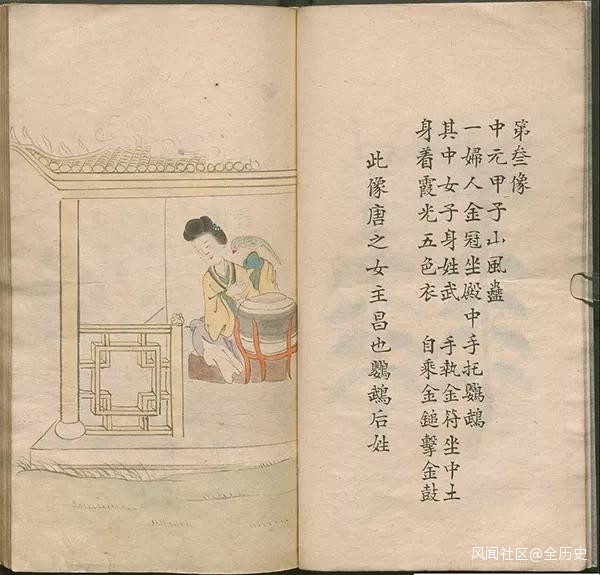 第叁像
中元甲子山風蠱
一婦人金冠坐殿中手托鸚鵡
其中女子身姓武 手執金符坐中土
身着霞光五色衣 自乘金鎚擊金鼓
此像唐之女主昌也鸚鵡后姓
风闻社区@全历史